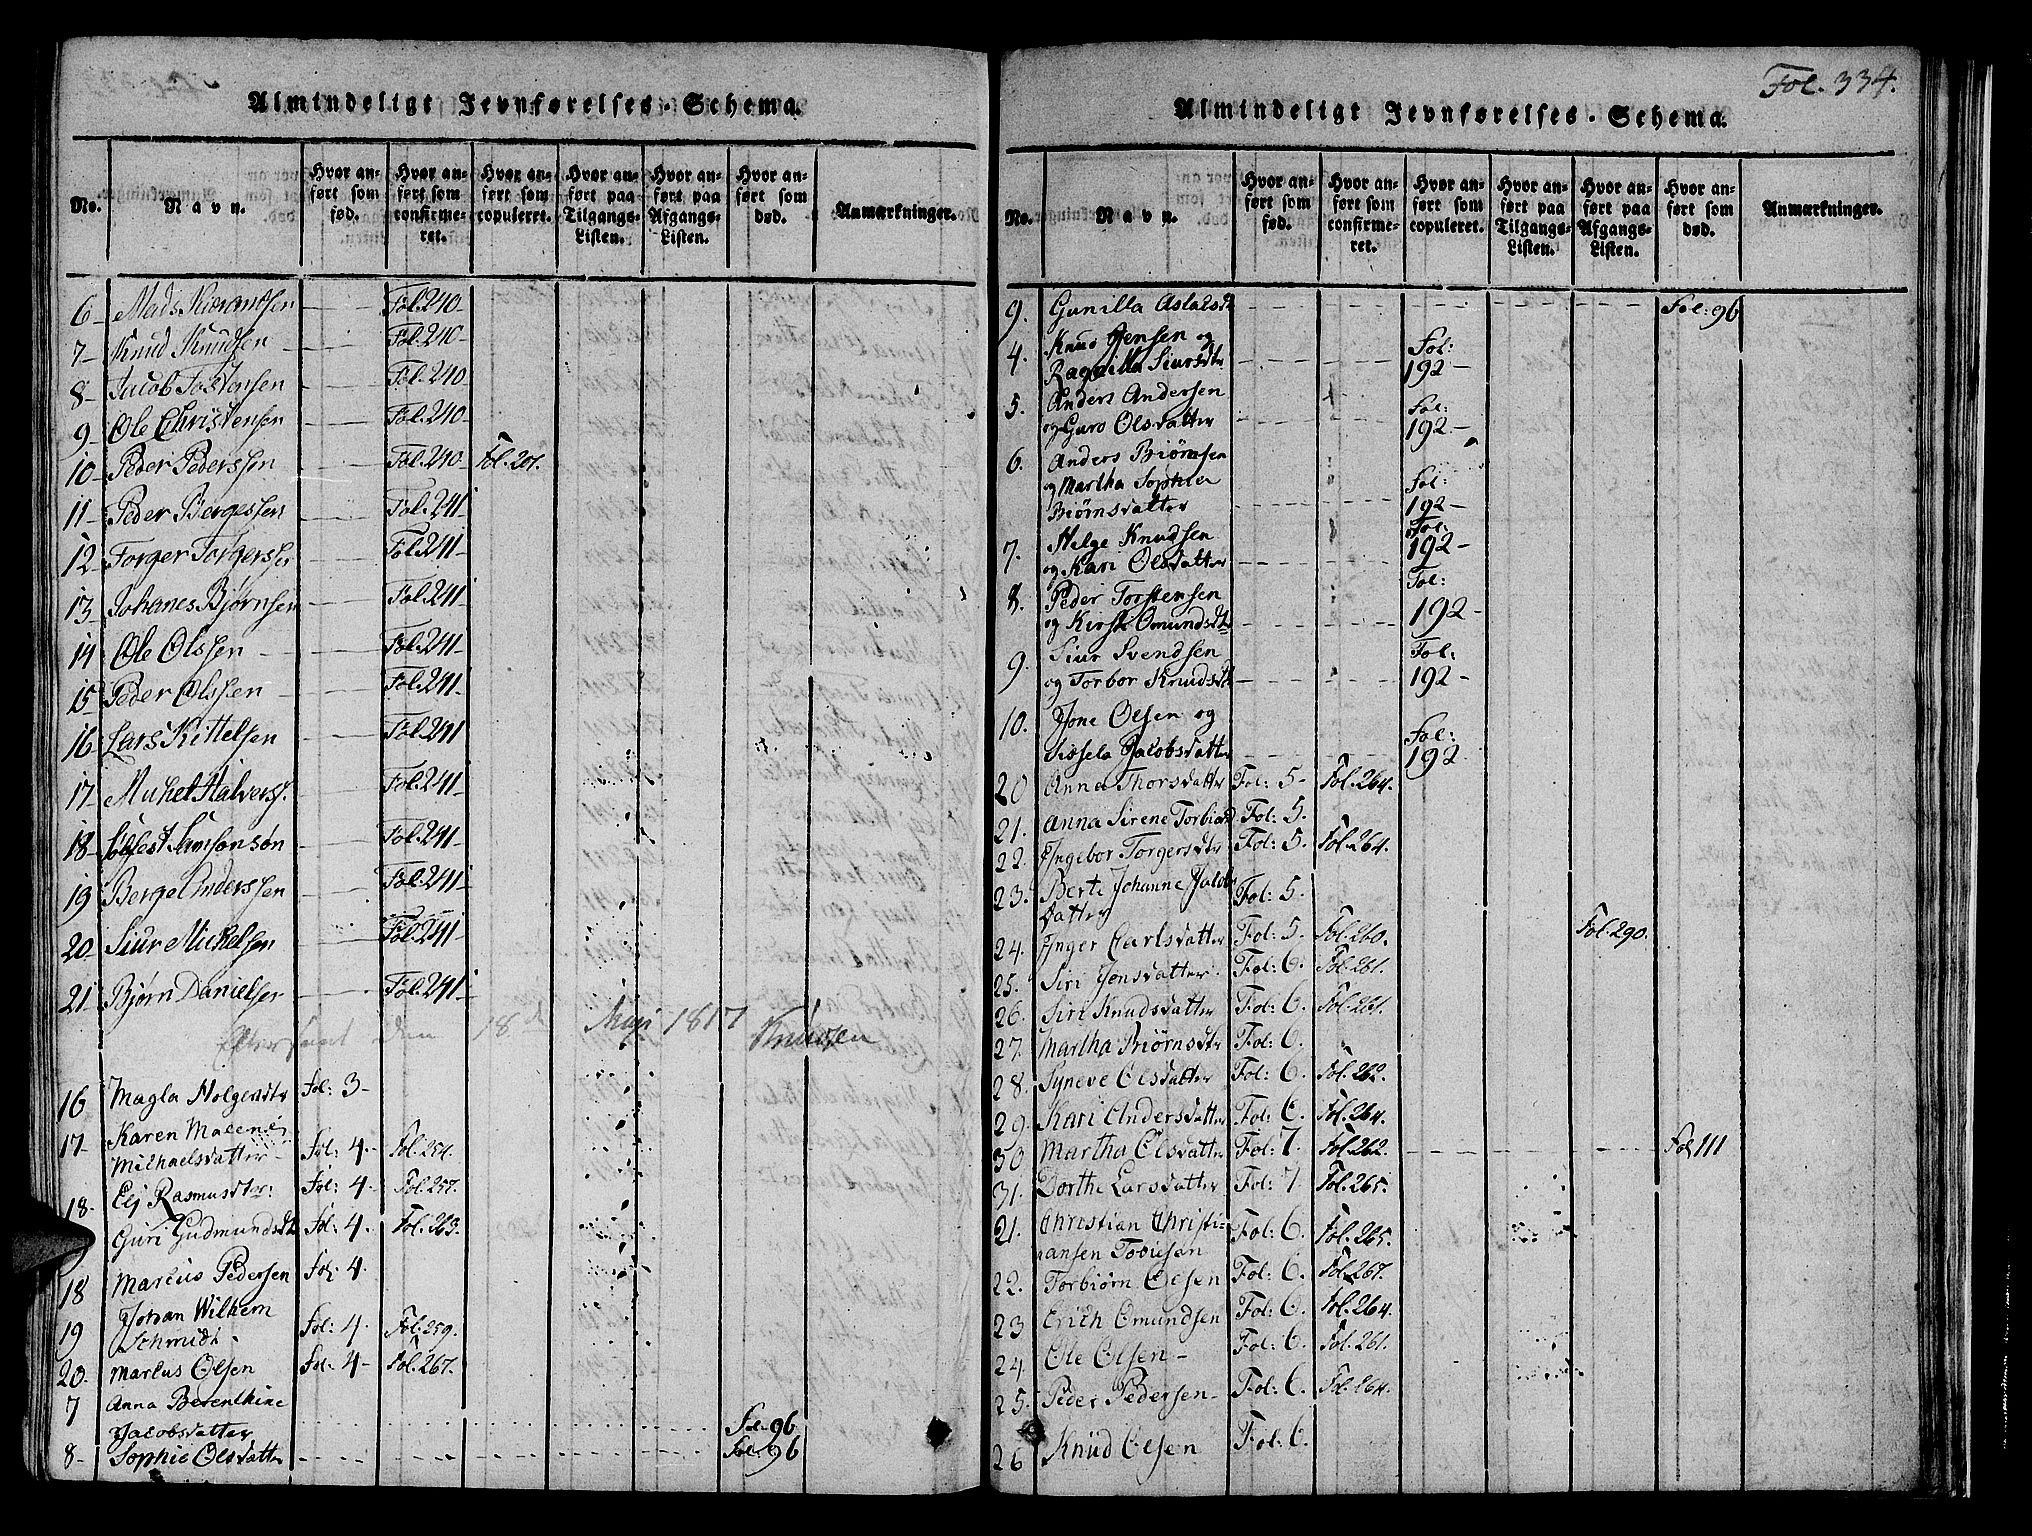 Almindeligt Jevnførelses-Schema.
No. Navn. Hvor anført som fød. Hvor anført som confirmeret. Hvor anført som copuleret. Hvor anført paa Tilgangs-Listen. Hvor anført paa Afgangs-Listen. Hvor anført som død. Anmærkninger.
6 Mads Fol. 240
7 Knud Knudsen Fol. 240
8 Jacob Tostensen Fol. 240
9 Ole Christensen Fol. 240
10 Peder Pederssen Fol. 240 Fol. 201.
11 Peder Børgessen Fol. 241
12 Torger Torgerssen Fol. 241
13 Johanes Bjørnsen Fol. 241
14 Ole Olssen Fol. 241
15 Peder Olssen Fol. 241
16 Lars Kittelsen Fol. 241
17 Mickel Halverss. Fol. 241
18 Samsonsøn Fol. 241
19 Berge Anderssen Fol. 241
20 Siur Mickelsen Fol. 241
21 Bjørn Danielsen Fol. 241
Efterseet den 18de Maji 1817 Knudsen
16 Magla Holgersdtr Fol: 3
17 Karen Malene
Michaelsdatter Fol: 4 Fol. 257.
18. Elj Rasmusdtr: Fol: 4 Fol. 257.
Guri Gudmundsdtr Fol: 4. Fol. 263.
18 Marcus Pedersen Fol: 4.
19 Johan Wilhem
Schmidt Fol: 4. Fol. 259.
20. Marcus Olsen Fol: 4 Fol. 267.
7 Anna Berenthine
Jacobsdatter Fol. 96
8 Sophie Olsdatter Fol. 96
Fol. 334.
Almindeligt Jevnførelses-Schema.
No. Navn. Hvor anført som fød. Hvor anført som confirmeret. Hvor anført som copuleret. Hvor anført paa Tilgangs-Listen. Hvor anført paa Afgangs-Listen. Hvor anført som død. Anmærkninger.
9. Gunilla Aslaksdt Fol: 96
4. Knud Jensen og
Ragnilla Siursdtr Fol: 192
5. Anders Andersen
og Guro Olsdatter Fol: 192
6. Anders Biørnsen
og Martha Sophia
Biørnsdatter Fol: 192
7. Helge Knudsen
og Kari Olsdatter Fol: 192
8. Peder Torstensen
og Kirsti Omundsdtr Fol: 192
9. Siur Svendsen
og Torbor Knudsdtr Fol: 192
10. Jone Olsen og
Sissela Jacobsdatter Fol: 192
20 Anna Thorsdatter Fol: 5 Fol. 264.
21. Anna Sirene Torbiørnd Fol: 5.
22. Ingebor Torgersdtr Fol: 5. Fol. 264.
23. Berte Johanne Jacobs
datter Fol: 5.
24. Inger Carlsdatter Fol: 5. Fol. 260. Fol. 290.
25. Siri Jonsdatter Fol: 6. Fol. 261.
26. Siri Knudsdatter Fol: 6 Fol. 261.
27. Martha Biørnsdtr Fol: 6.
28. Syneve Olsdatter Fol: 6. Fol. 262.
29. Kari Andersdatter Fol: 6. Fol. 264.
30 Martha Olsdatter Fol: 7. Fol. 262. Fol 111
31. Dorthe Larsdatter Fol: 7 Fol. 265.
21. Christian Christi-
ansen Tobiesen Fol: 6. Fol. 265.
22. Torbiørn Olsen Fol: 6. Fol. 267.
23 Erich Omundsen Fol: 6. Fol. 264.
24. Ole Olsen Fol: 6. Fol. 261.
25. Peder Pedersen Fol: 6. Fol. 264.
26 Knud Olsen Fol: 6.